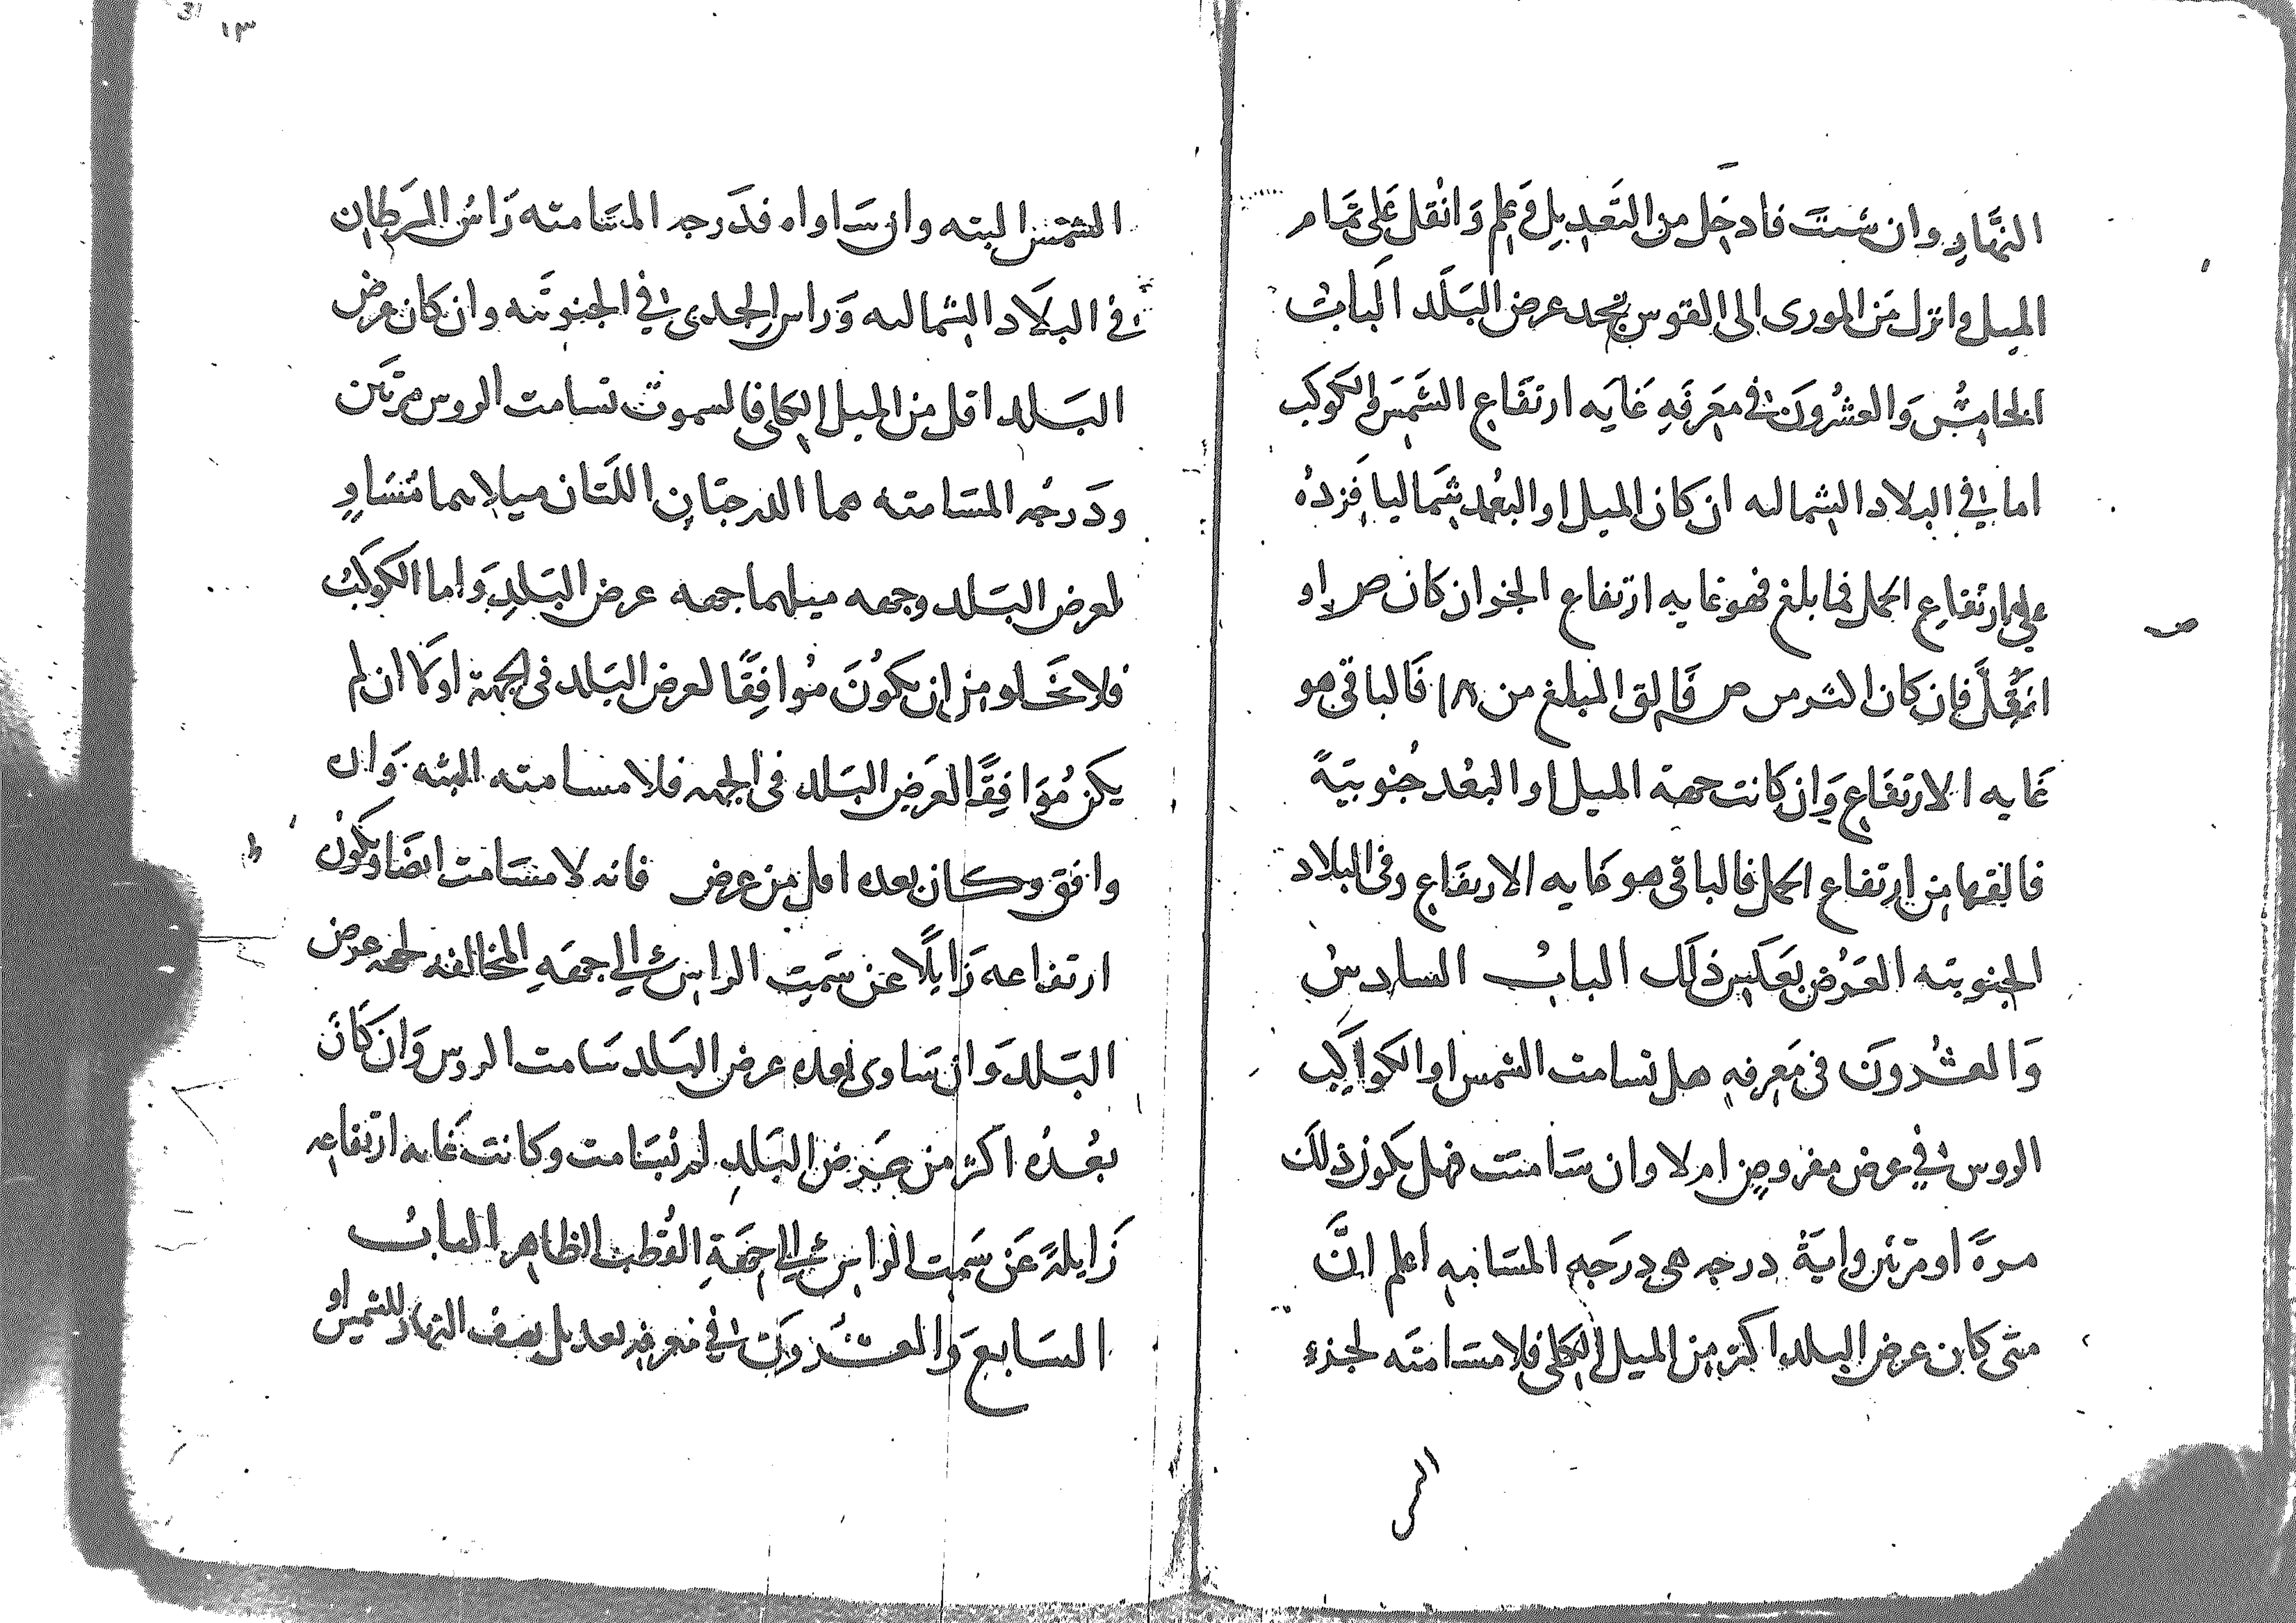 النهار وان شئت فادخل من التعديل في علم وانقل على تمام
الميل وانزل من المورى الى القوس تجد عرض البلد الباب
الخامس والعشرون في معرفه غايه ارتفاع الشمس والكوكب
اما في البلاد الشماليه ان كان الميل او البعد شماليا فزده
على ارتفاع الحمل فما بلغ فهو غايه ارتفاع الجز ان كان ص او
اقل فان كان اكثر من ص فالق المبلغ من ١٨٠ فالباقي هو
غايه الارتفاع وان كانت جهة الميل او البعد جنوبية
فالقها من ارتفاع الحمل فالباقي هو غايه الارتفاع وفي البلاد
الجنوبيه العرض بعكس ذلك الباب السادس
والعشرون في معرفه هل تسامت الشمس او الكواكب
الروس في عرض مفروض ام لا وان سامتت فهل يكون ذلك
مرة او مرتين واية درجه هي درجه المسامته اعلم ان
متى كان عرض البلد اكثر من الميل الكلي فلا مسامته لجزء
الشمس البته وان ساواه فدرجه المسامته راس السرطان
في البلاد الشماليه وراس الجدي في الجنوبيه وان كان عرض
البلد اقل من الميل الكلي فالسموت تسامت الروس مرتين
ودرجه المسامته هما الدرجتان اللتان ميلاهما متساو
لعرض البلد وجهه ميلهما جهه عرض البلد واما الكوكب
فلا يخلو من ان يكون موافقا لعرض البلد في الجهة او لا فان لم
يكن موافقا لعرض البلد في الجهه فلا مسامته البته وان
وافق وكان بعده اقل من عرض فانه لا مسامت ايضا ويكون
ارتفاعه زايلا عن سمت الراس الي الجهه المخالفه لجهه عرض
البلد وان ساوى بعده عرض البلد سامت الروس وان كان
بعده اكثر من عرض البلد لم يسامت وكانت غايه ارتفاعه
زايلة عن سمت الراس الي جهة القطب الظاهر الباب
السابع والعشرون في معرفه تعديل نصف النهار للشمس او